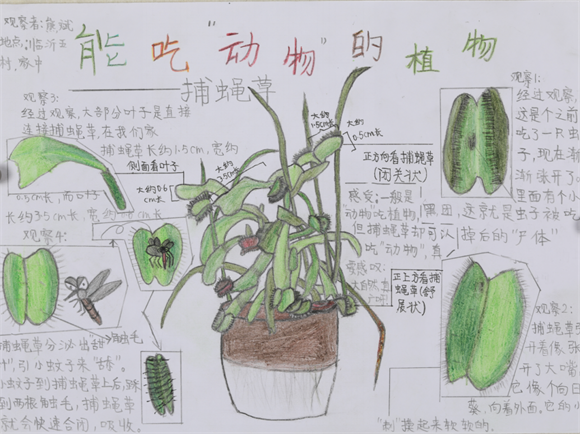 观察者:熊斌
地点:临沂王
村,家中
能吃“动物”的植物
——捕蝇草
观察3:
经过观察,大部分叶子是直接
连接捕蝇草,在我们家
捕蝇草长约1.5cm,宽约
0.5cm长,而叶子
长约3.5cm长,宽约0.6cm
侧面看叶子
大约0.6
cm长
大约
3.5cm长
大约
1.5cm长
大约
0.5cm长
观察1:
经过观察
这是个之前
吃了一只虫
子,现在渐
渐张开了
里面有个小
黑团,这就是虫子被吃
掉后的“尸体”
正方向看捕蝇草
(闭关状)
感受:一般是
“动物吃植物,
但捕蝇草却可以
吃“动物”,真
正上方看捕
蝇草(舒
展状)
观察2:
捕蝇草张
开着像张
开了大嘴,
它像个向日
葵,向着外面,它的小
“刺”摸起来软软的.
观察4:
捕蝇草分泌出甜
汁”,引小蚊子来“舔”。
小蚊子到捕蝇草上后,踩
到两根触毛,捕蝇草
就会快速合闭,吸收。
触毛